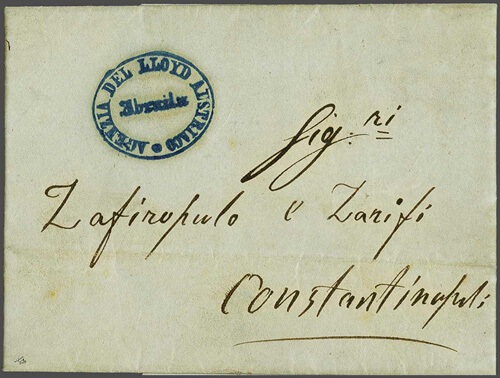 AGENZIA DEL LLOYD AUSTRIACO
Ibraila
Sig.ri
Zafiropulo e Zarifi
Constantinopoli